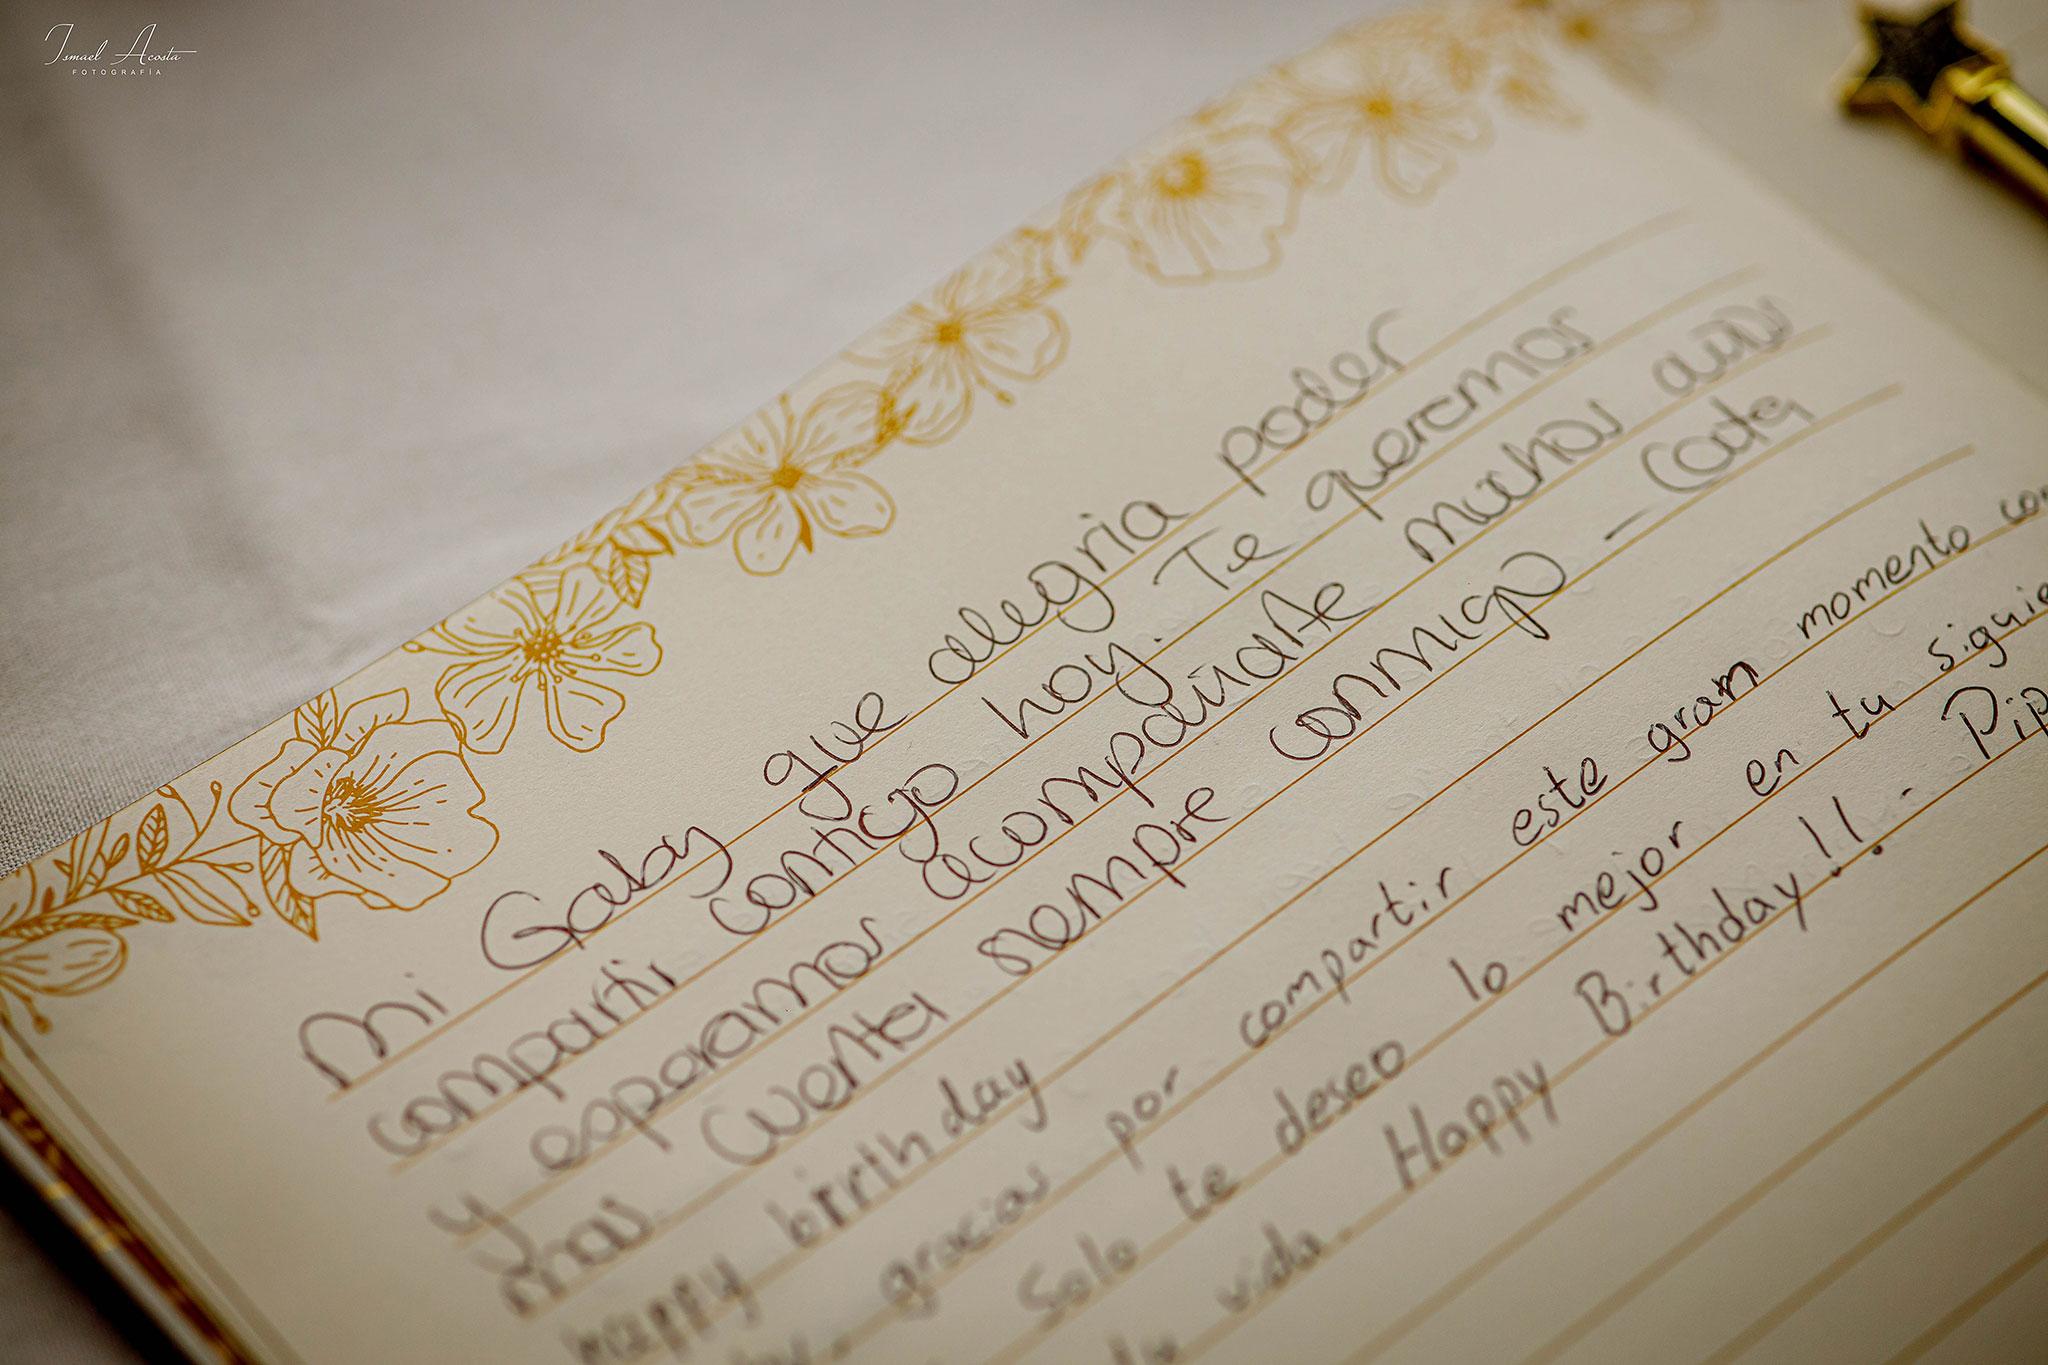 Ismael Acosta
FOTOGRAFÍA
Mi Gaby que alegria poder
compartir contigo hoy. Te queremos
y esperamos acompañarte muchos años
mas. Cuenta siempre conmigo - Cata
Happy birthday
gracias por compartir este gran momento
Solo te deseo lo mejor en tu
vida. Happy Birthday!! -